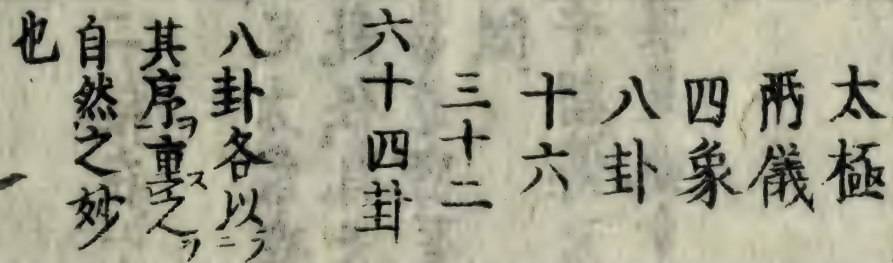 太極
兩儀
四象
八卦
十六
三十二
六十四卦
八卦各以
其序重之
自然之妙
也